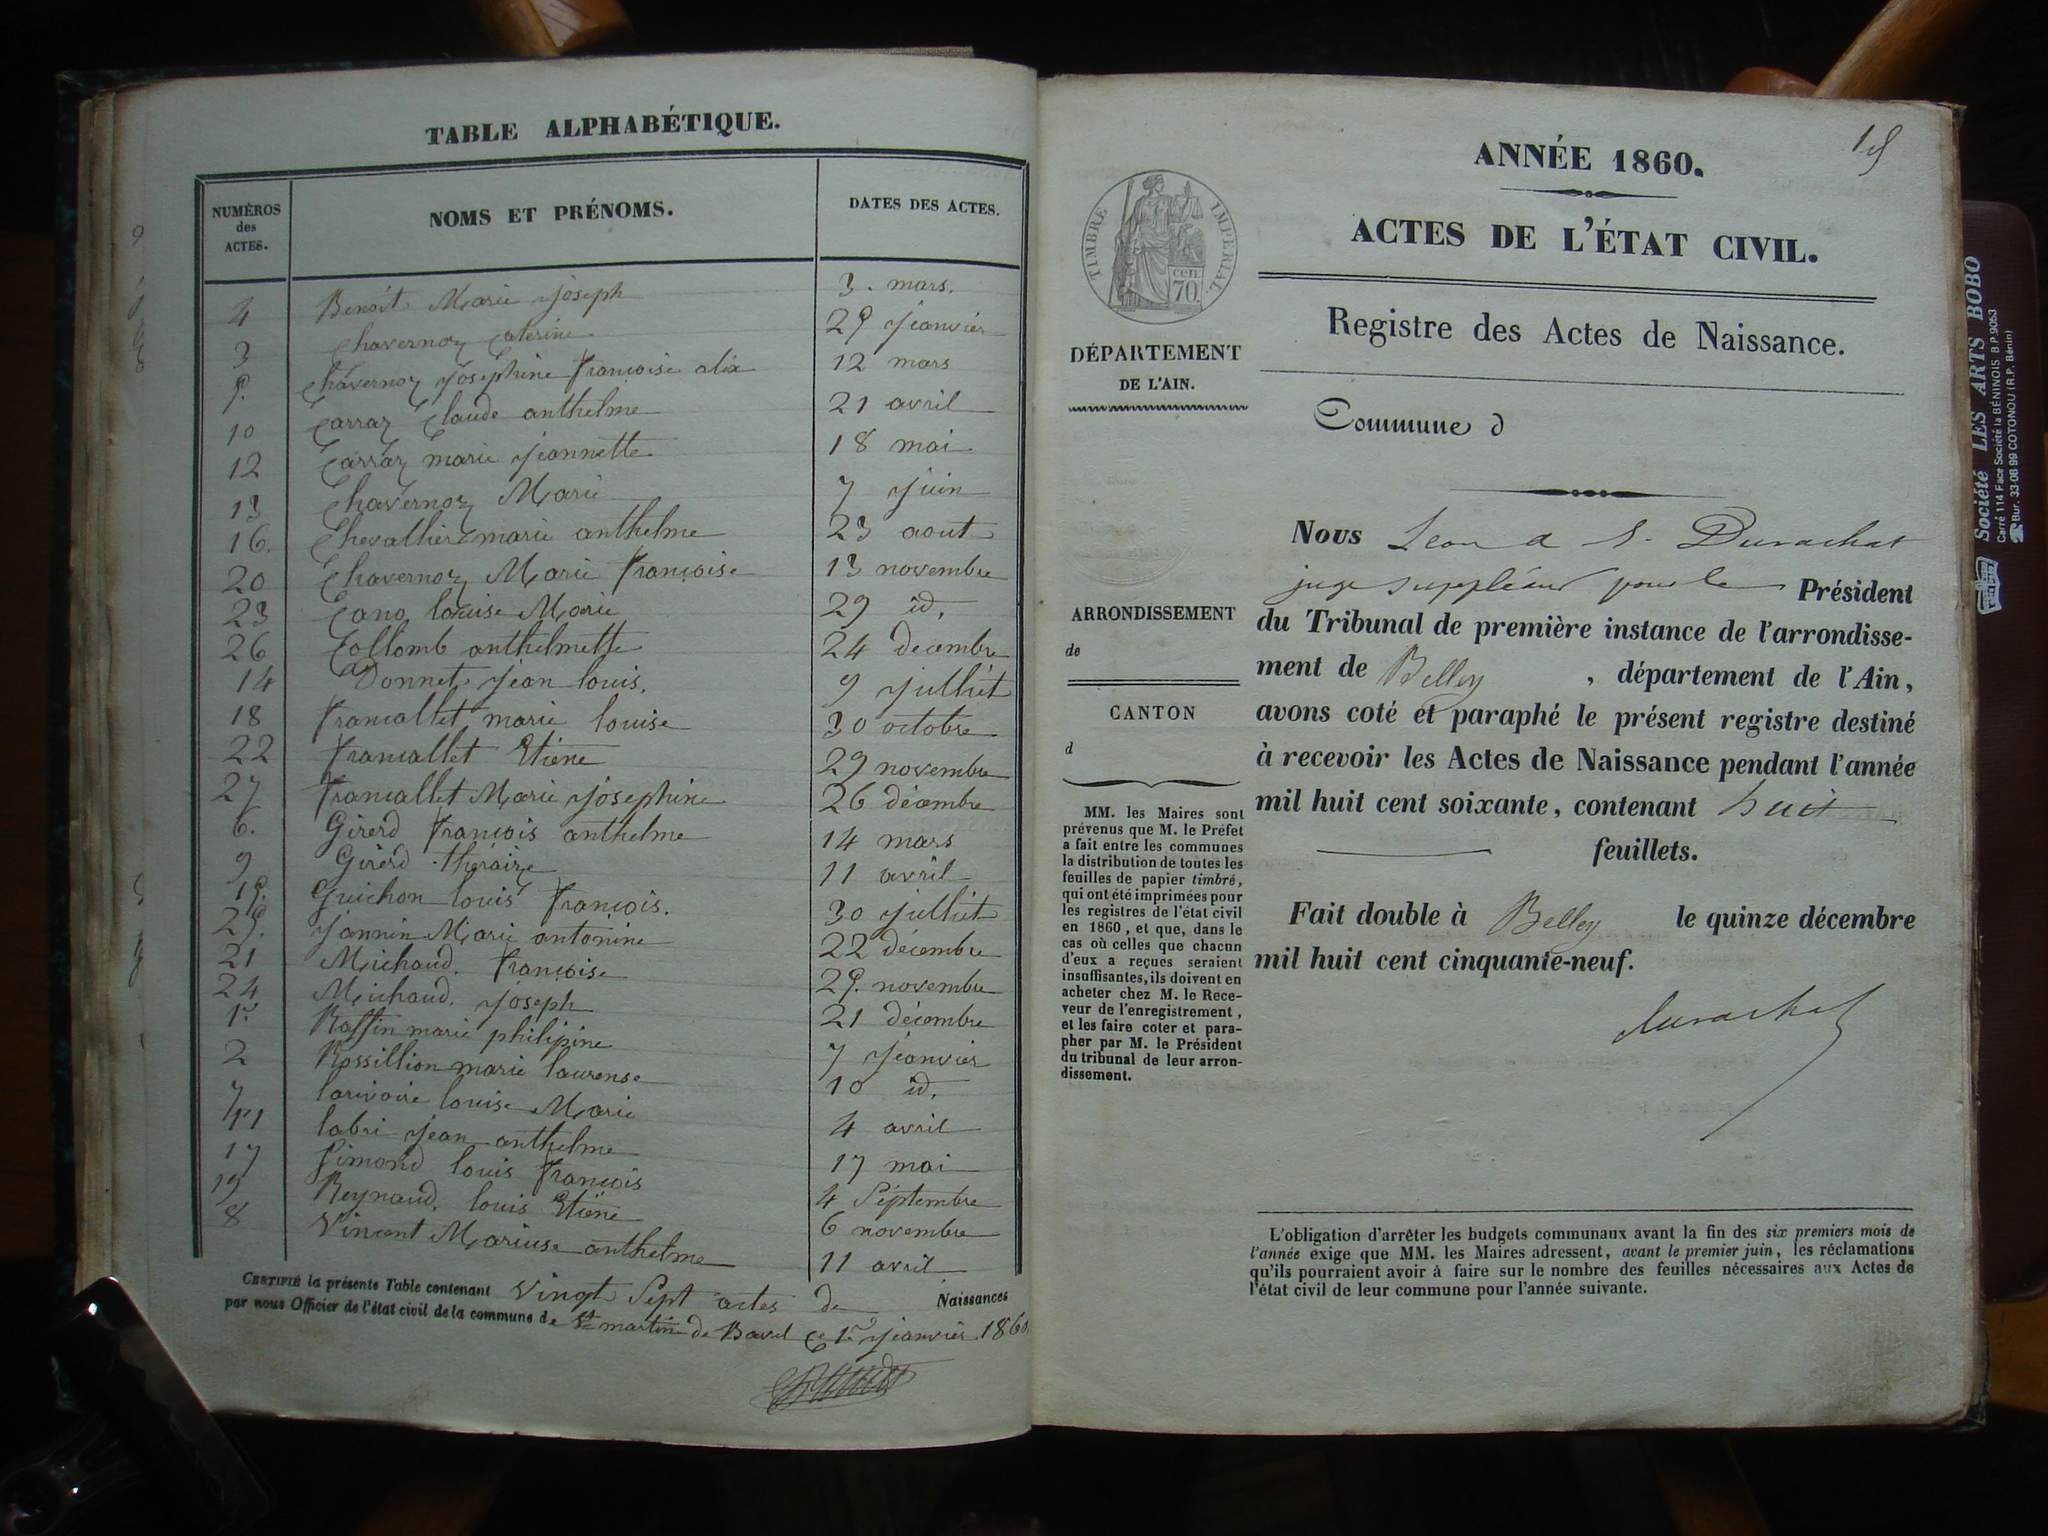 TABLE ALPHABÉTIQUE.
NUMÉROS des ACTES. NOMS ET PRÉNOMS. DATES DES ACTES.
4 Benoit Marie Joseph 3. mars.
3 Chavernoz Caterine 29 Jeanvier
5. Chavernoz Josephine Françoise alix 12 mars
10 Carraz Claude anthelme 21 avril
12 Carraz marie Jeannette 18 mai
13 Chavernoz Marie 7 Juin
16. Chevallier marie anthelme 23 aout
20 Chavernoz Marie Françoise 13 novembre
23 Cano louise Marie 29 id.
26 Collomb anthelmette 24 décembre
14 Donnet Jean louis. 9 Julliet
18 Francallet marie louise 30 octobre
22 Francallet Etiene 29 novembre
27 Francallet Marie Josephine 26 décembre
6. Girerd François anthelme 14 mars
9 Girerd théraize 11 avril
15. Guichon louis François. 30 Julliet
25. Jannin Marie antonine 22 décembre
21 Michaud. Françoise 25. novembre
24 Michaud. Joseph 21 décembre
1er Raffin marie philipine 7 Jeanvier
2 Rossillion marie laurense 10 id.
7 larivoire louise Marie 4 avril
11 labri Jean anthelme 17 mai
17 Simond louis François 4 Septembre
19 Reynaud. louis Etiene 6 novembre
8 Vincent Mariuse anthelme 11 avril
CERTIFIÉ la présente Table contenant Vingt Sept actes de Naissances
par nous Officier de l'état civil de la commune de St martin de Bavel ce 1er Jeanvier 1860
ANNÉE 1860.
ACTES DE L'ÉTAT CIVIL.
TIMBRE IMPÉRIAL.
cen. 70.
Registre des Actes de Naissance.
DÉPARTEMENT
DE L'AIN.
Commune d
Nous Leon A S. Durachat
juge suppléant pour le Président
du Tribunal de première instance de l'arrondisse-
ment de Belley, département de l'Ain,
avons coté et paraphé le présent registre destiné
à recevoir les Actes de Naissance pendant l'année
mil huit cent soixante, contenant huit
feuillets.
Fait double à Belley le quinze décembre
mil huit cent cinquante-neuf.
durachat
ARRONDISSEMENT
de
CANTON
d
MM. les Maires sont
prévenus que M. le Préfet
a fait entre les communes
la distribution de toutes les
feuilles de papier timbré,
qui ont été imprimées pour
les registres de l'état civil
en 1860, et que, dans le
cas où celles que chacun
d'eux a reçues seraient
insuffisantes, ils doivent en
acheter chez M. le Rece-
veur de l'enregistrement,
et les faire coter et para-
pher par M. le Président
du tribunal de leur arron-
dissement.
L'obligation d'arrêter les budgets communaux avant la fin des six premiers mois de
l'année exige que MM. les Maires adressent, avant le premier juin, les réclamations
qu'ils pourraient avoir à faire sur le nombre des feuilles nécessaires aux Actes de
l'état civil de leur commune pour l'année suivante.
Société LES ARTS BOBO
Carré 114 Face Société la BÉNINOIS B.P.9053
Bur. 33-08 99 COTONOU (R.P. Bénin)